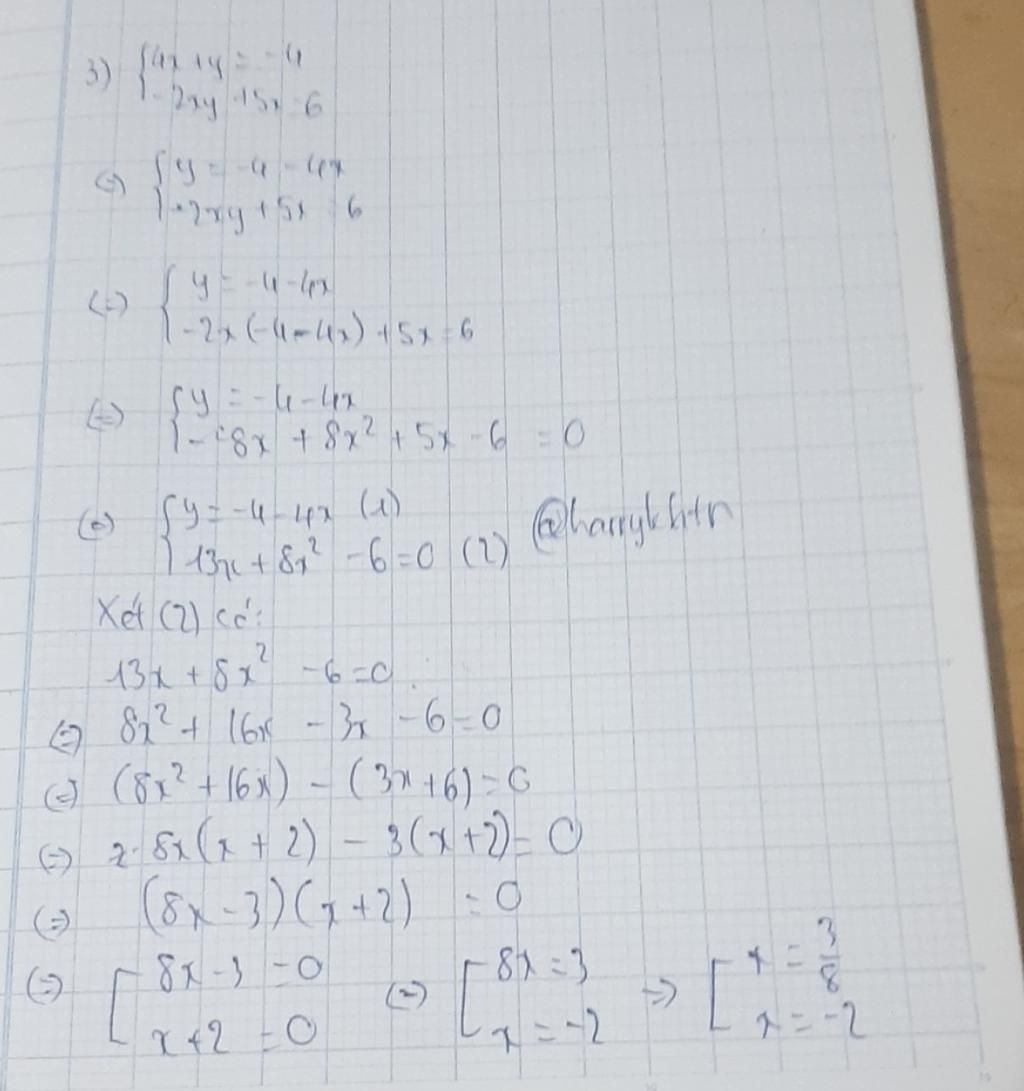 3) { 4x + y = -4
-2xy + 5x = 6
(=) { y = -4 - 4x
-2xy + 5x = 6
(=) { y = -4 - 4x
-2x(-4-4x) + 5x = 6
(=) { y = -4 - 4x
- 8x + 8x² + 5x - 6 = 0
(=) { y = -4 - 4x (1)
13x + 8x² - 6 = 0 (2)
@harrykhtn
Xét (2) có:
13x + 8x² - 6 = 0
(=) 8x² + 16x - 3x - 6 = 0
(=) (8x² + 16x) - (3x + 6) = 0
(=) 8x(x + 2) - 3(x + 2) = 0
(=) (8x - 3)(x + 2) = 0
(=) [ 8x - 3 = 0 (=) [ 8x = 3 => [ x = 3/8
x + 2 = 0 x = -2 x = -2